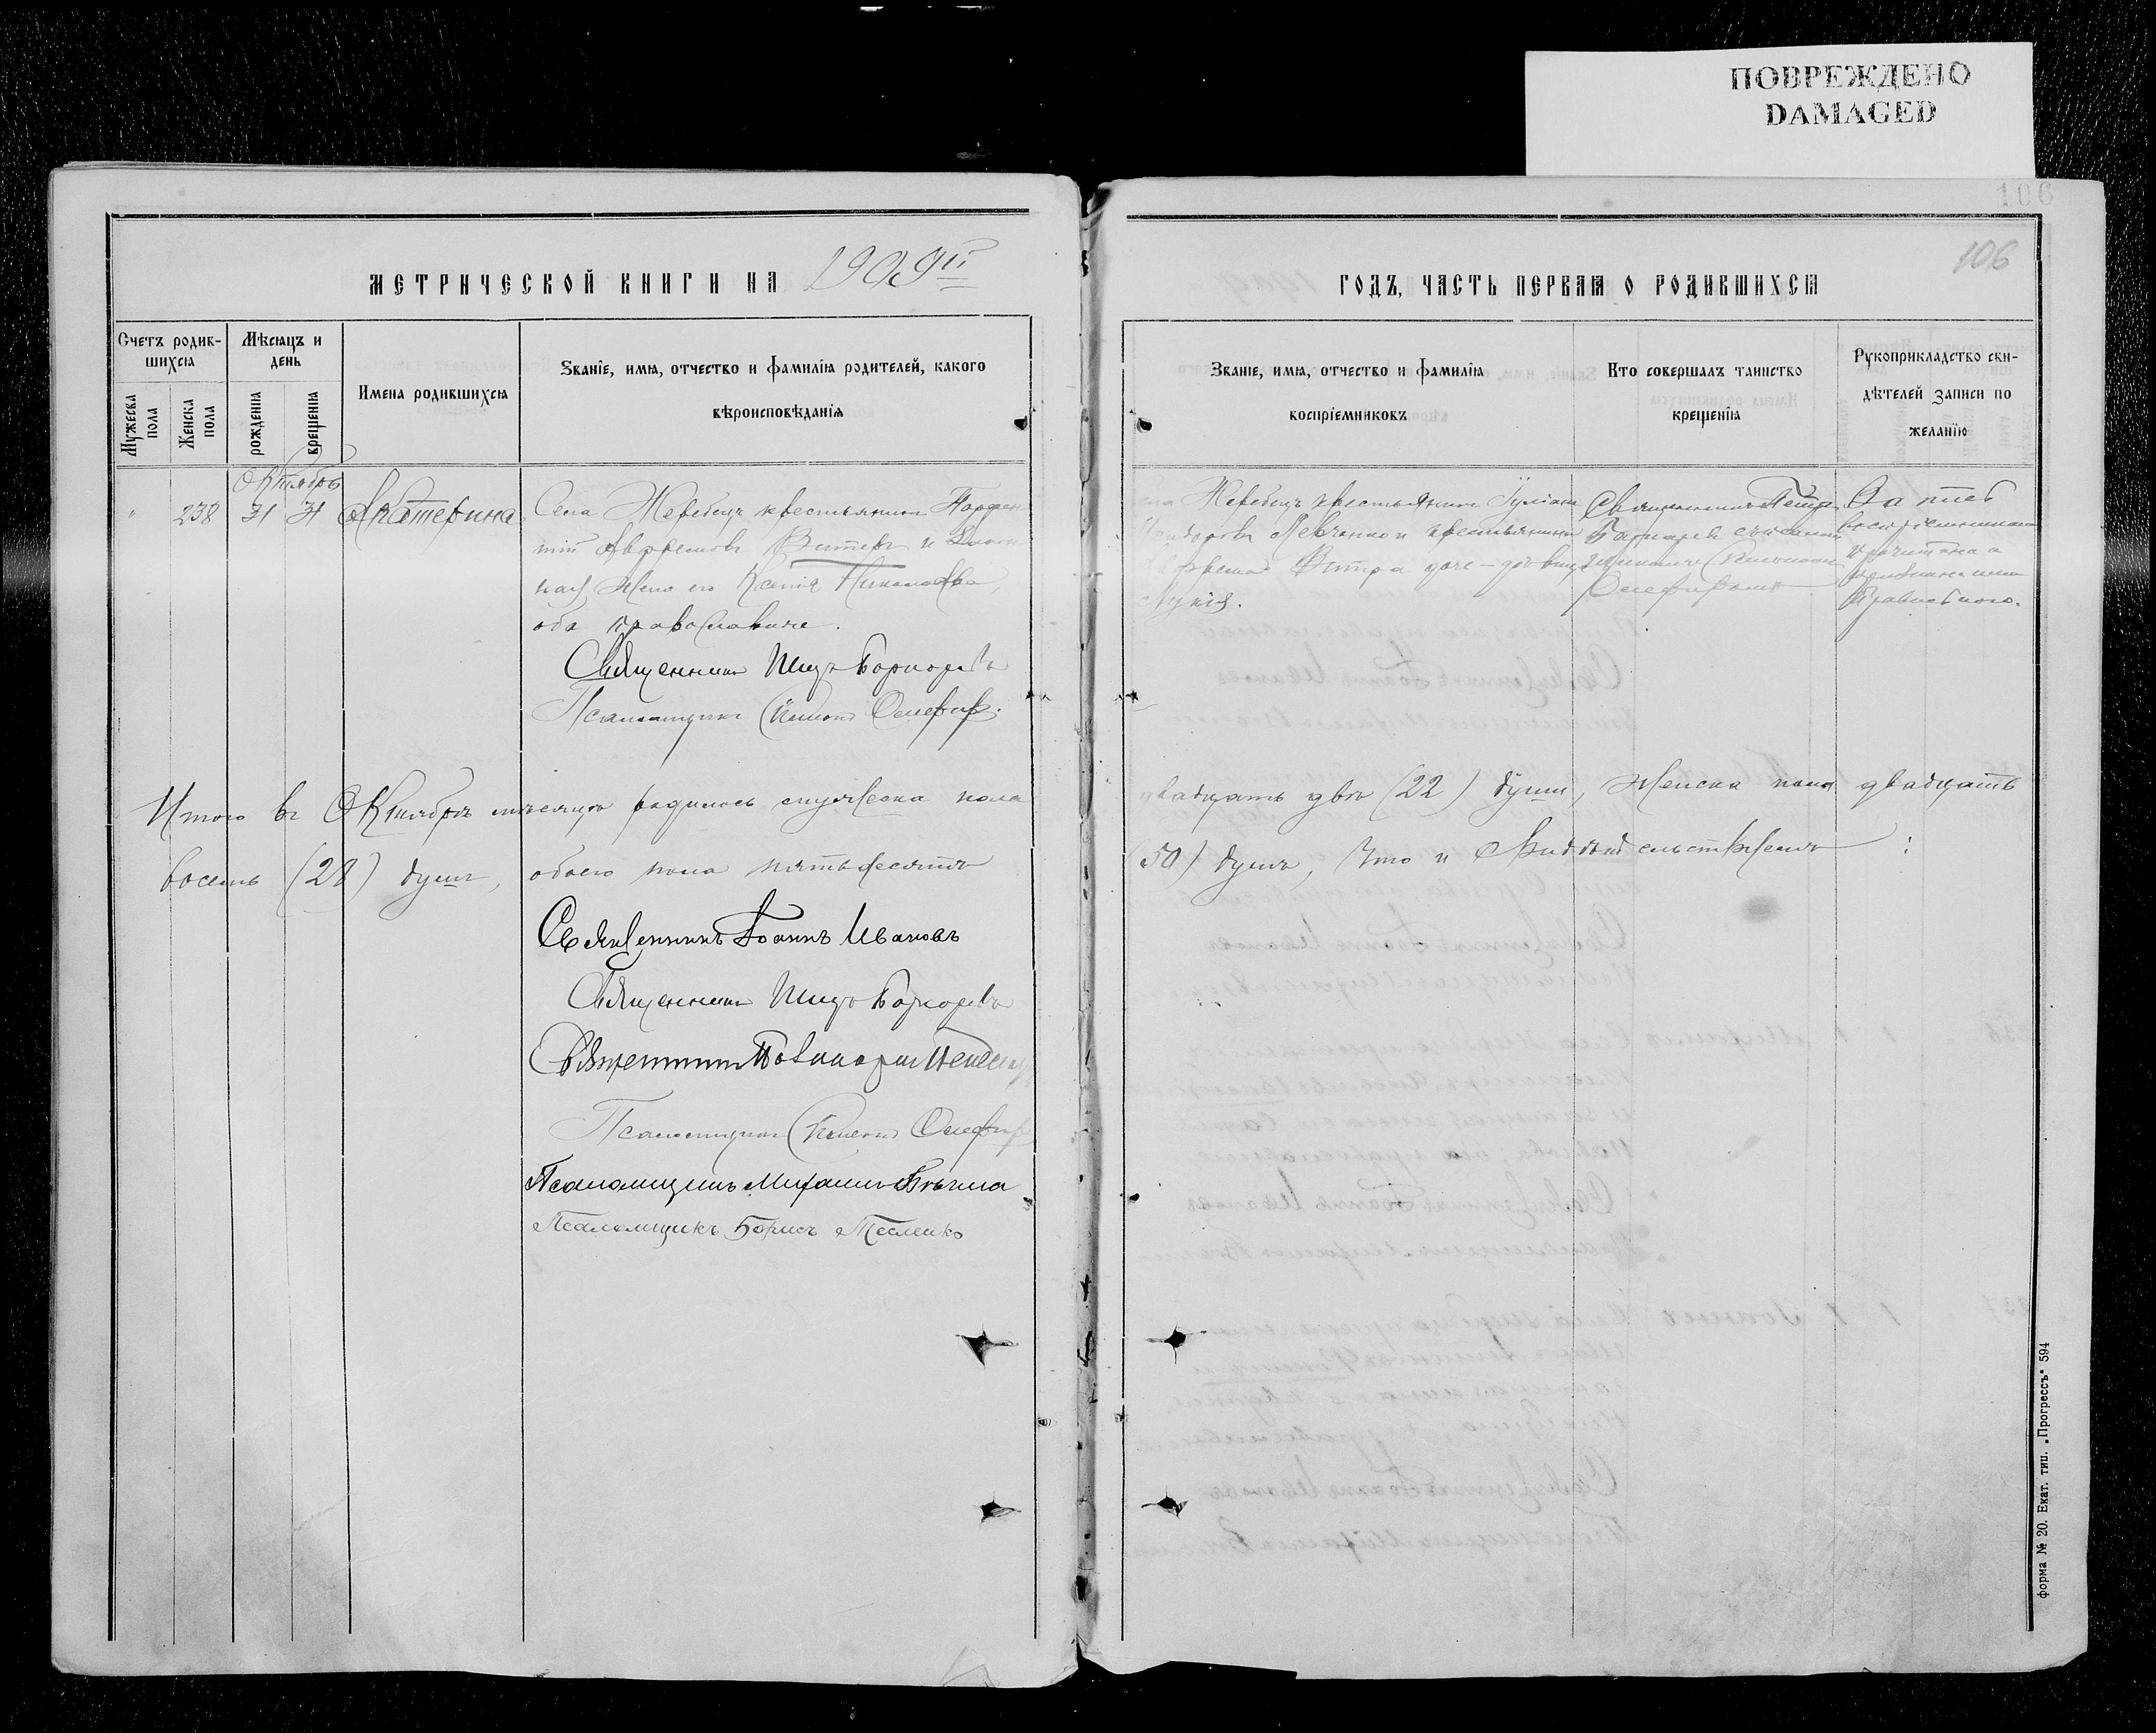 ПОВРЕЖДЕНО
DAMAGED
106
106
МЕТРИЧЕСКОЙ КНИГИ НА 1909й
ГОДЪ, ЧАСТЬ ПЕРВАЯ О РОДИВШИХСЯ
Счетъ родившихся
Мужеска пола
Женска пола
Мѣсяцъ и день
рожденія
крещенія
Имена родившихся
Званіе, имя, отчество и фамилія родителей, какого
вѣроисповѣданія
Званіе, имя, отчество и фамилія
воспріемниковъ
Кто совершалъ таинство
крещенія
Рукоприкладство сви-
дѣтелей записи по
желанію
Октябрь
" 238 31 31 Екатерина
Села Жеребецъ крестьянинъ Парфен
тій Ефремовъ Витеръ и закон
ная жена его Ксенія Николаева,
оба православные.
Священникъ Петръ
Псаломщикъ Симеонъ Олефиръ.
Жеребецъ крестьянинъ
Левченко и крестьянина
дочь-дѣвица
Лукія.
Священникъ Петръ
съ псалом
щикомъ Симеономъ
Олефиромъ
За
воспріемников
Итого въ Октябрѣ мѣсяцѣ родилось мужеска пола
двадцать два (22) души, женска пола двадцать
восемь (28) душъ, обоего пола пятьдесятъ
(50) душъ, что и свидѣтельствуемъ:
Священникъ Іоаннъ Ивановъ
Священникъ Петръ
Священникъ
Псаломщикъ Симеонъ Олефиръ
Псаломщикъ Михаилъ
Псаломщикъ Борисъ Тесленко
форма № 20. Екат. тип. „Прогрессъ“ 594